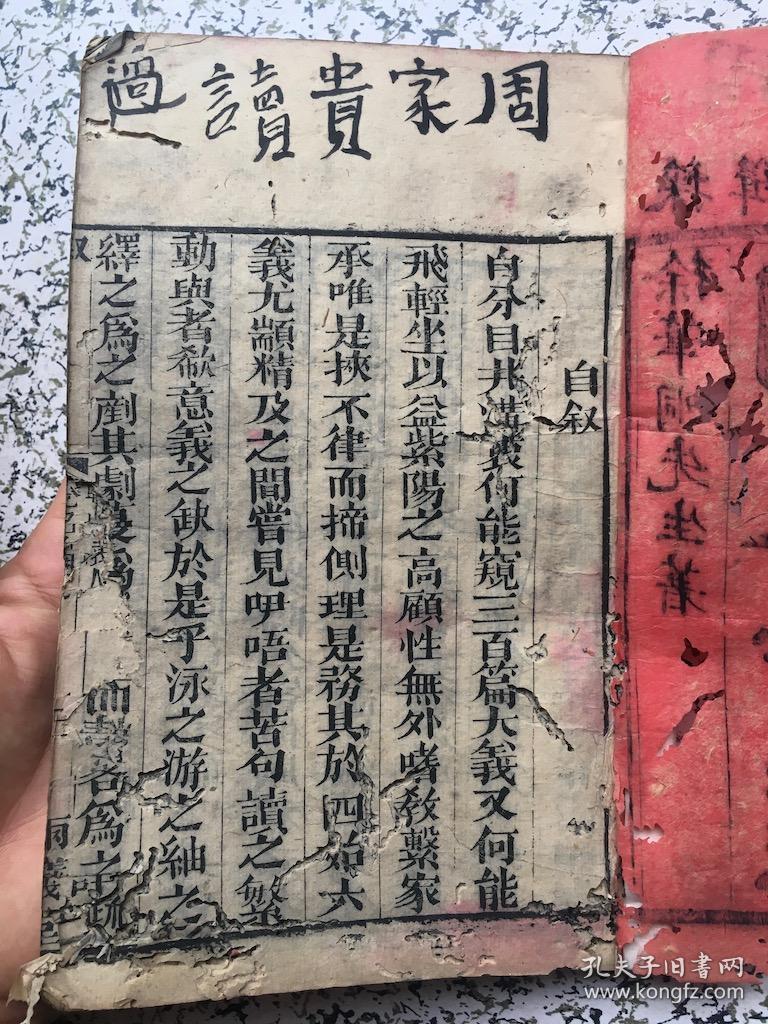 周家貴讀過
自叙
自分目井溝裏何能窺三百篇大義又何能
飛輕坐以益紫陽之高顧性無外嗜教繫家
承唯是挾不律而掃側理是務其於四始六
義尤顓精及之間嘗見吚唔者苦句讀之繁
動與者欷意義之缺於是乎泳之游之紬之
繹之爲之劑其劇 而 各爲之疏
叙
先生著
孔夫子旧书网
www.kongfz.com